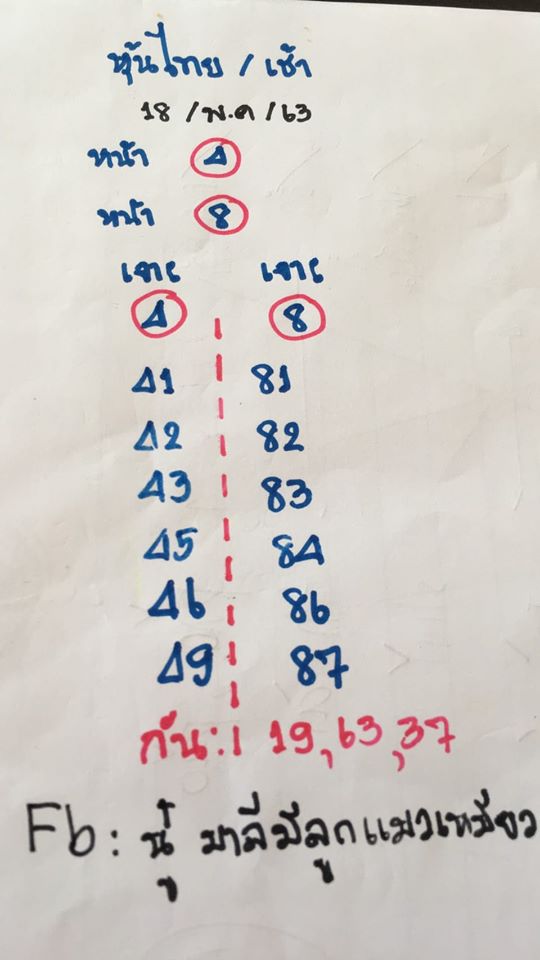 หุ้นไทย / เช้า
18 / พ.ค / 63
หน้า 4
หน้า 8
เจาะ เจาะ
4 8
41 81
42 82
43 83
45 84
46 86
49 87
กัน: 19, 63, 37
Fb: นู๋ มาลีมีลูกแมวเหมียว